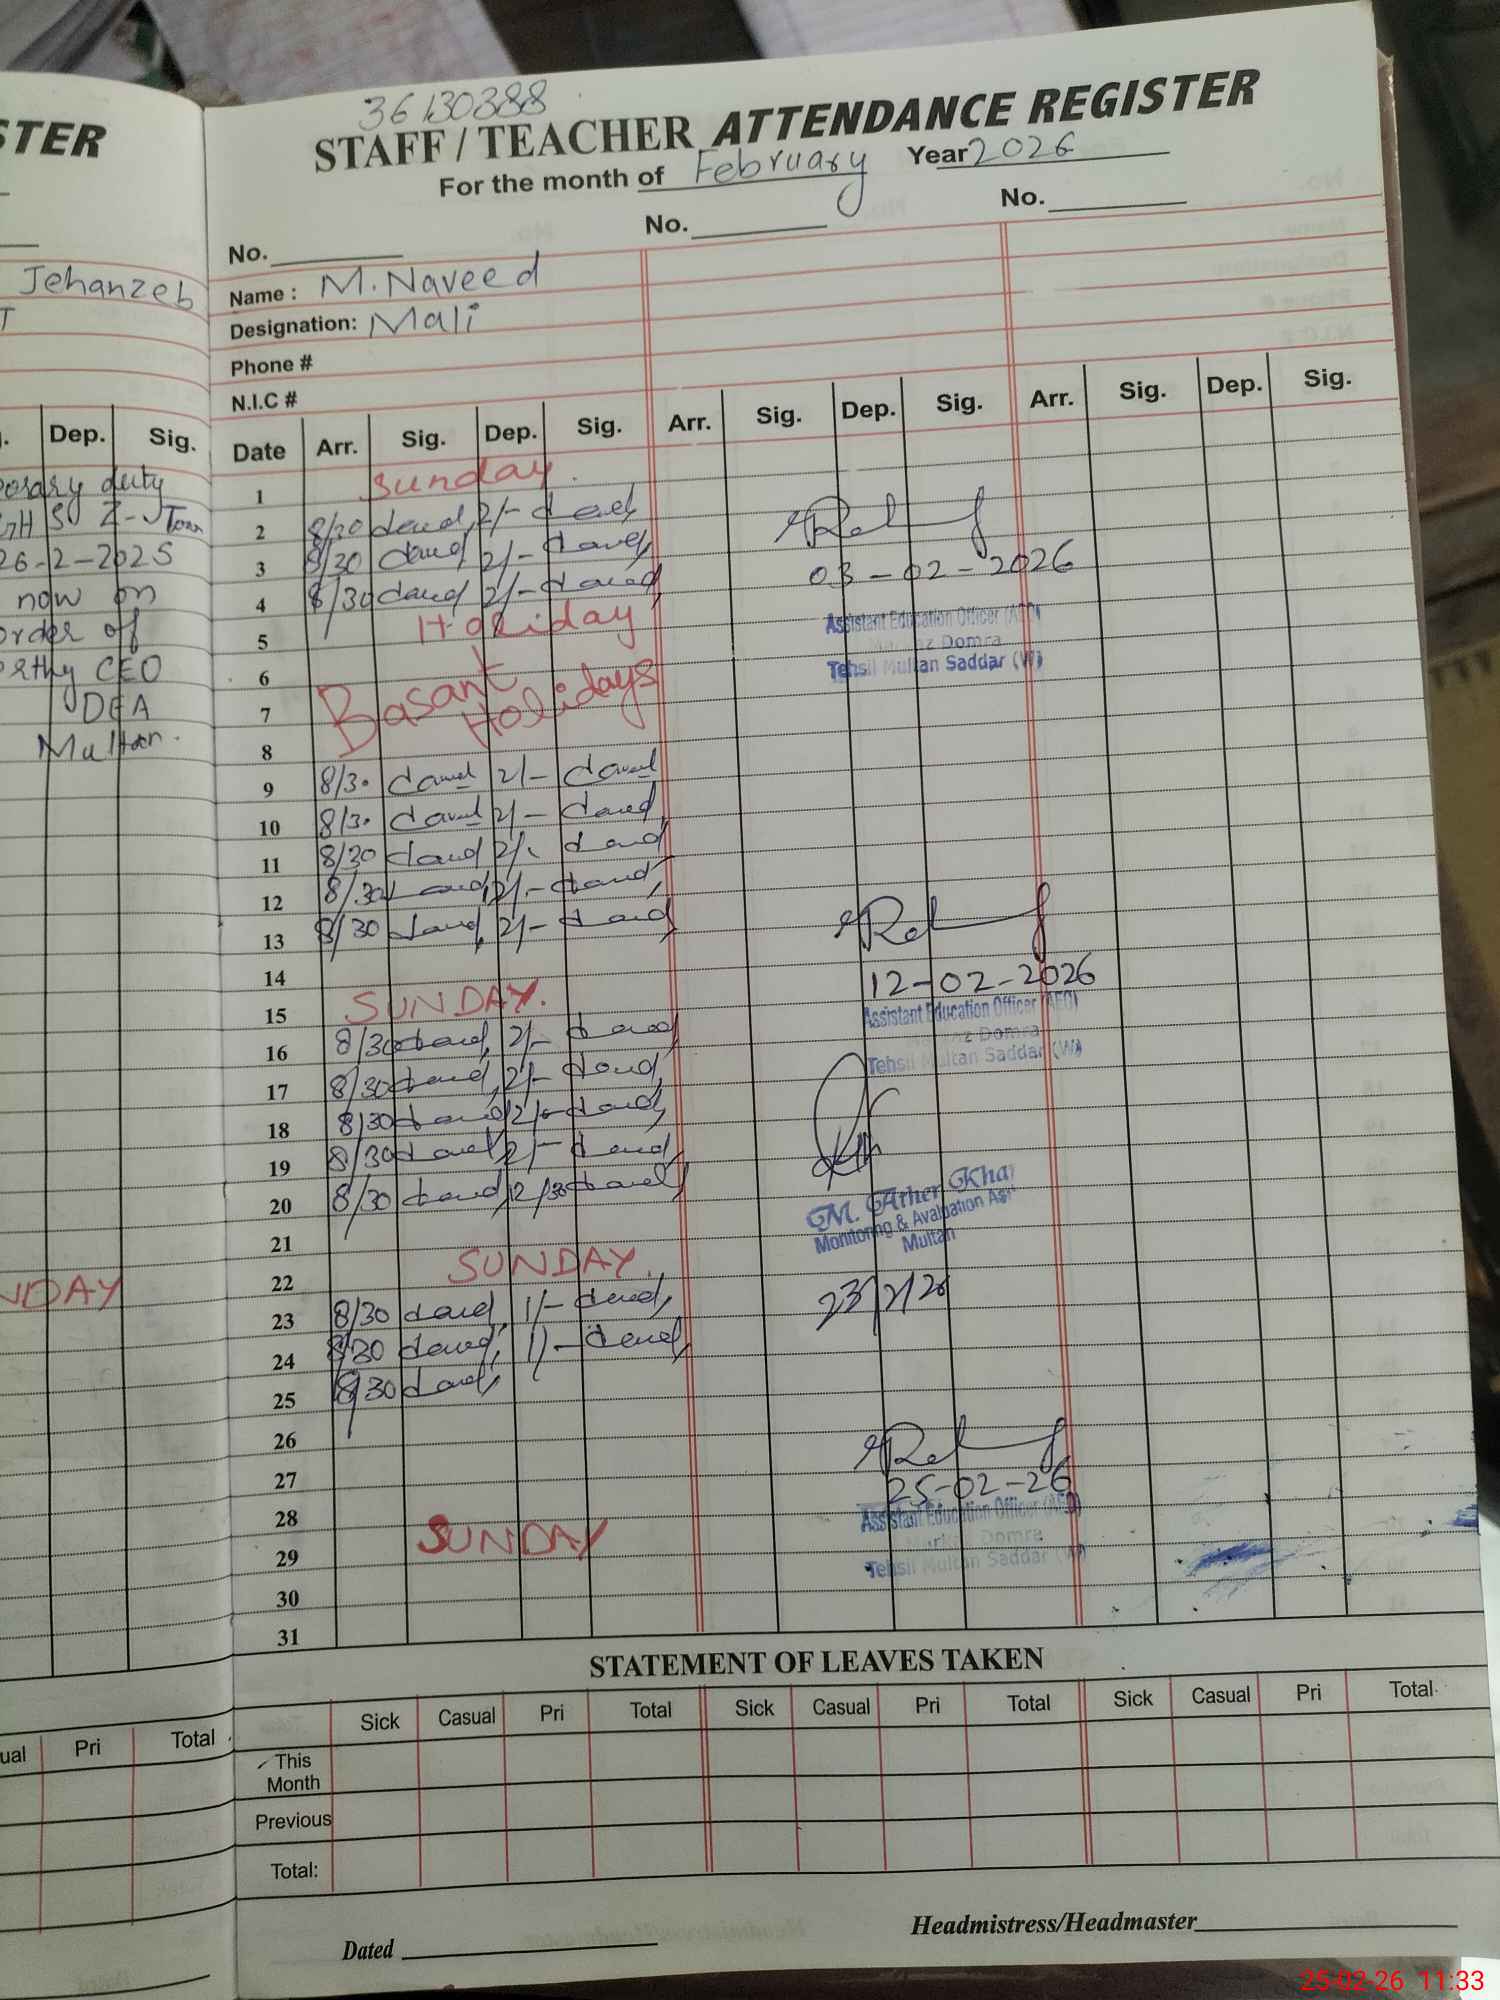 STER
Jehanzeb
T
Dep. Sig.
porary duty
GHS Z-Town
26-2-2025
now on
order of
orthy CEO
DEA
Multan.
NDAY
ual Pri Total
36130388
STAFF / TEACHER ATTENDANCE REGISTER
For the month of February Year 2026
No. No. No.
Name : M. Naveed
Designation: Mali
Phone #
N.I.C #
Date Arr. Sig. Dep. Sig. Arr. Sig. Dep. Sig. Arr. Sig. Dep. Sig.
1 Sunday.
2 8/30 2/-
3 8/30 2/-
03-02-2026
4 8/30 2/-
Assistant Education Officer (AEO)
5 Holiday
Domra
Tehsil Multan Saddar (W)
6
7 Basant Holidays
8
9 8/30 2/-
10 8/30 2/-
11 8/30 2/-
12 8/30 2/-
13 8/30 2/-
14
12-02-2026
15 SUNDAY.
Assistant Education Officer (AEO)
Domra
Tehsil Multan Saddar (W)
16 8/30 2/-
17 8/30 2/-
18 8/30 2/-
19 8/30 2/-
20 8/30 12/30
M. Ather Kha
Monitoring & Avaluation Ass
Multan
21
22 SUNDAY.
23 8/30 1/-
23/2/26
24 8/30 1/-
25 8/30
26
27
25-02-26
28
Assistant Education Officer (AEO)
Markaz Domra
Tehsil Multan Saddar (W)
29 SUNDAY
30
31
STATEMENT OF LEAVES TAKEN
Sick Casual Pri Total Sick Casual Pri Total Sick Casual Pri Total
This Month
Previous
Total:
Dated Headmistress/Headmaster
25-02-26 11:33